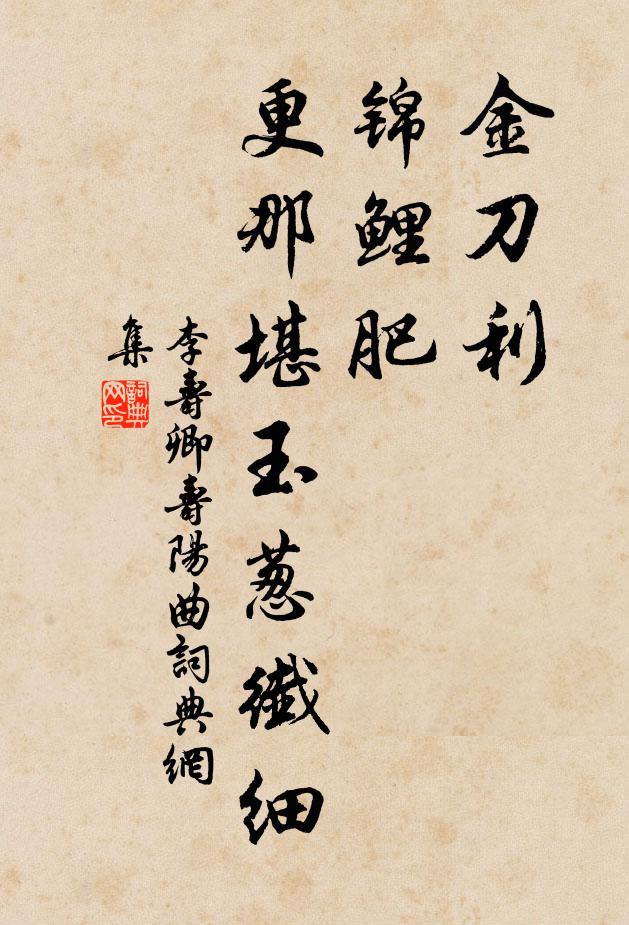 金刀利
锦鲤肥
更那堪玉葱纖细
李壽卿壽陽曲詞典網
集
詞典网印